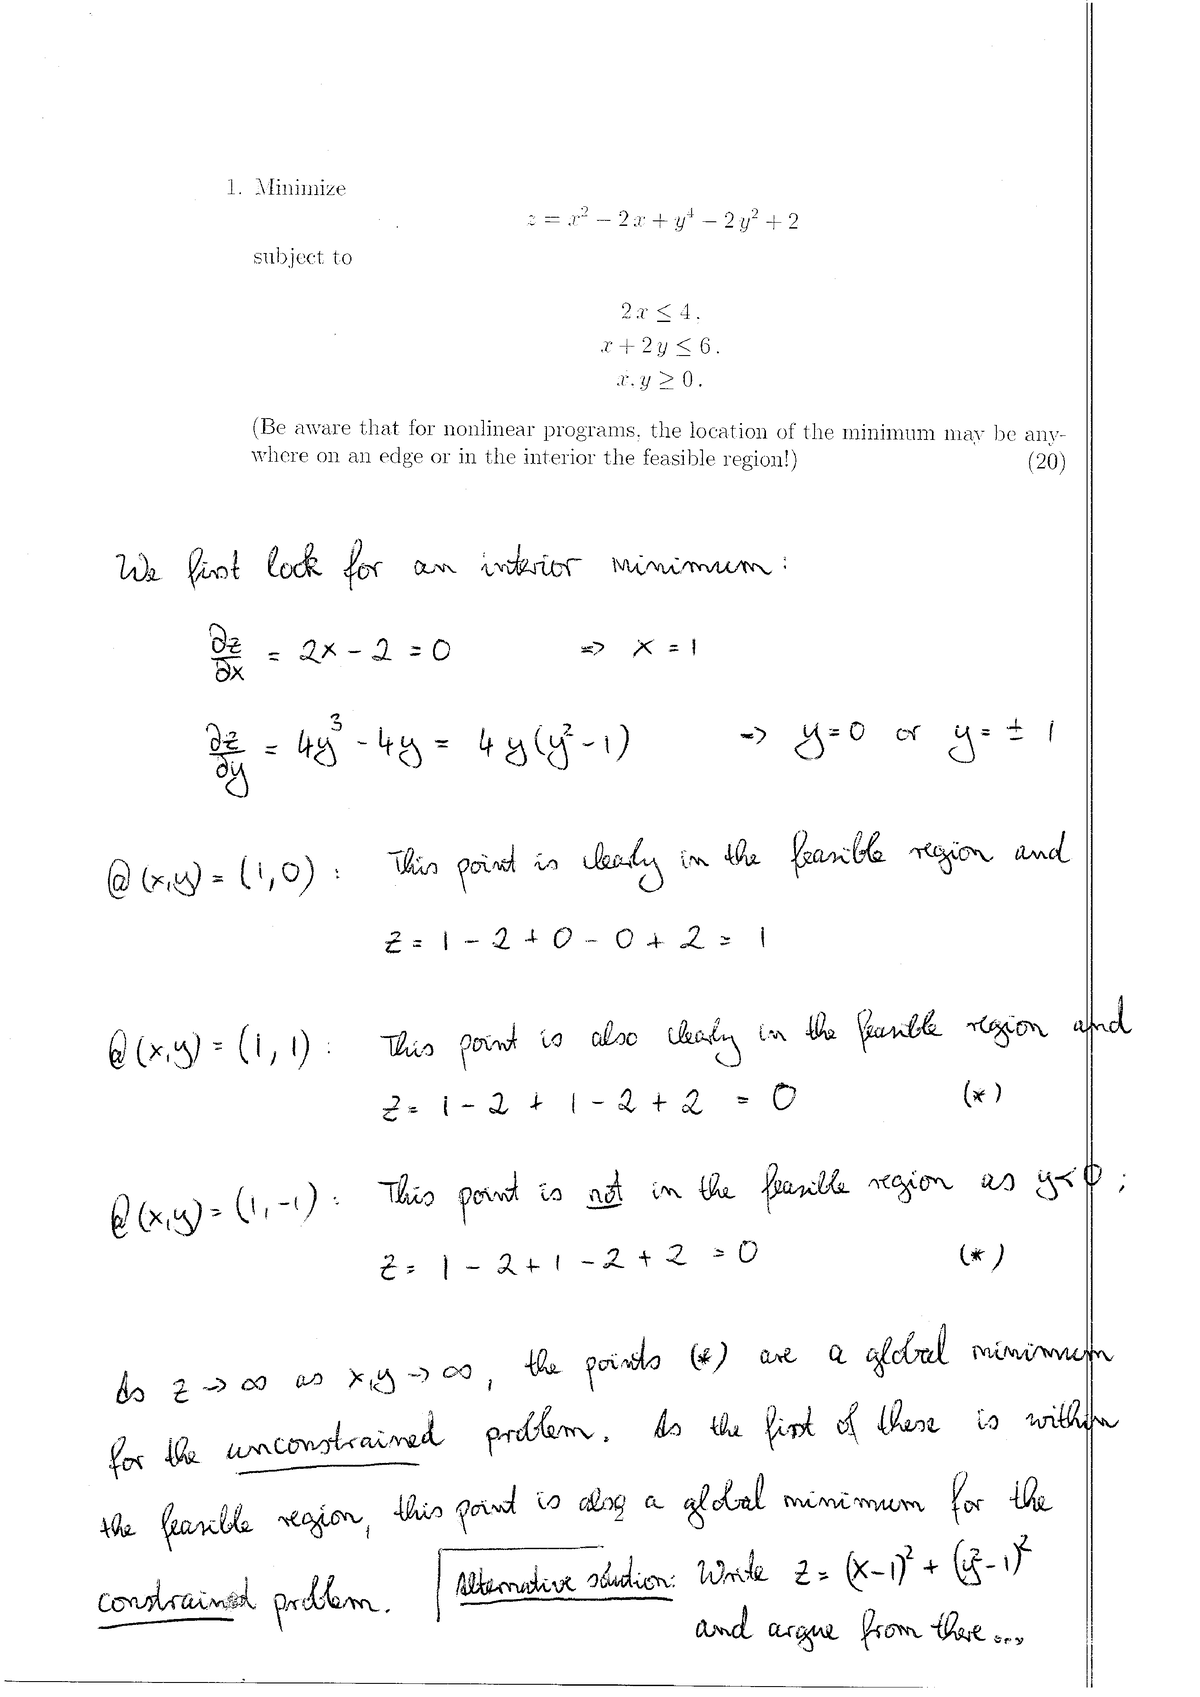 1. Minimize
z = x² − 2x + y⁴ − 2y² + 2
subject to
2x ≤ 4,
x + 2y ≤ 6,
x, y ≥ 0.
(Be aware that for nonlinear programs, the location of the minimum may be any-
where on an edge or in the interior the feasible region!) (20)
We first look for an interior minimum:
∂z/∂x = 2x − 2 = 0 => x = 1
∂z/∂y = 4y³ − 4y = 4y(y² − 1) => y = 0 or y = ± 1
@ (x,y) = (1,0) : This point is clearly in the feasible region and
z = 1 − 2 + 0 − 0 + 2 = 1
@ (x,y) = (1,1) : This point is also clearly in the feasible region and
z = 1 − 2 + 1 − 2 + 2 = 0 (*)
@ (x,y) = (1,−1) : This point is not in the feasible region as y < 0 ;
z = 1 − 2 + 1 − 2 + 2 = 0 (*)
As z → ∞ as x,y → ∞, the points (*) are a global minimum
for the unconstrained problem. As the first of these is within
the feasible region, this point is also a global minimum for the
constrained problem. Alternative solution: Write z = (x−1)² + (y²−1)²
and argue from there ...